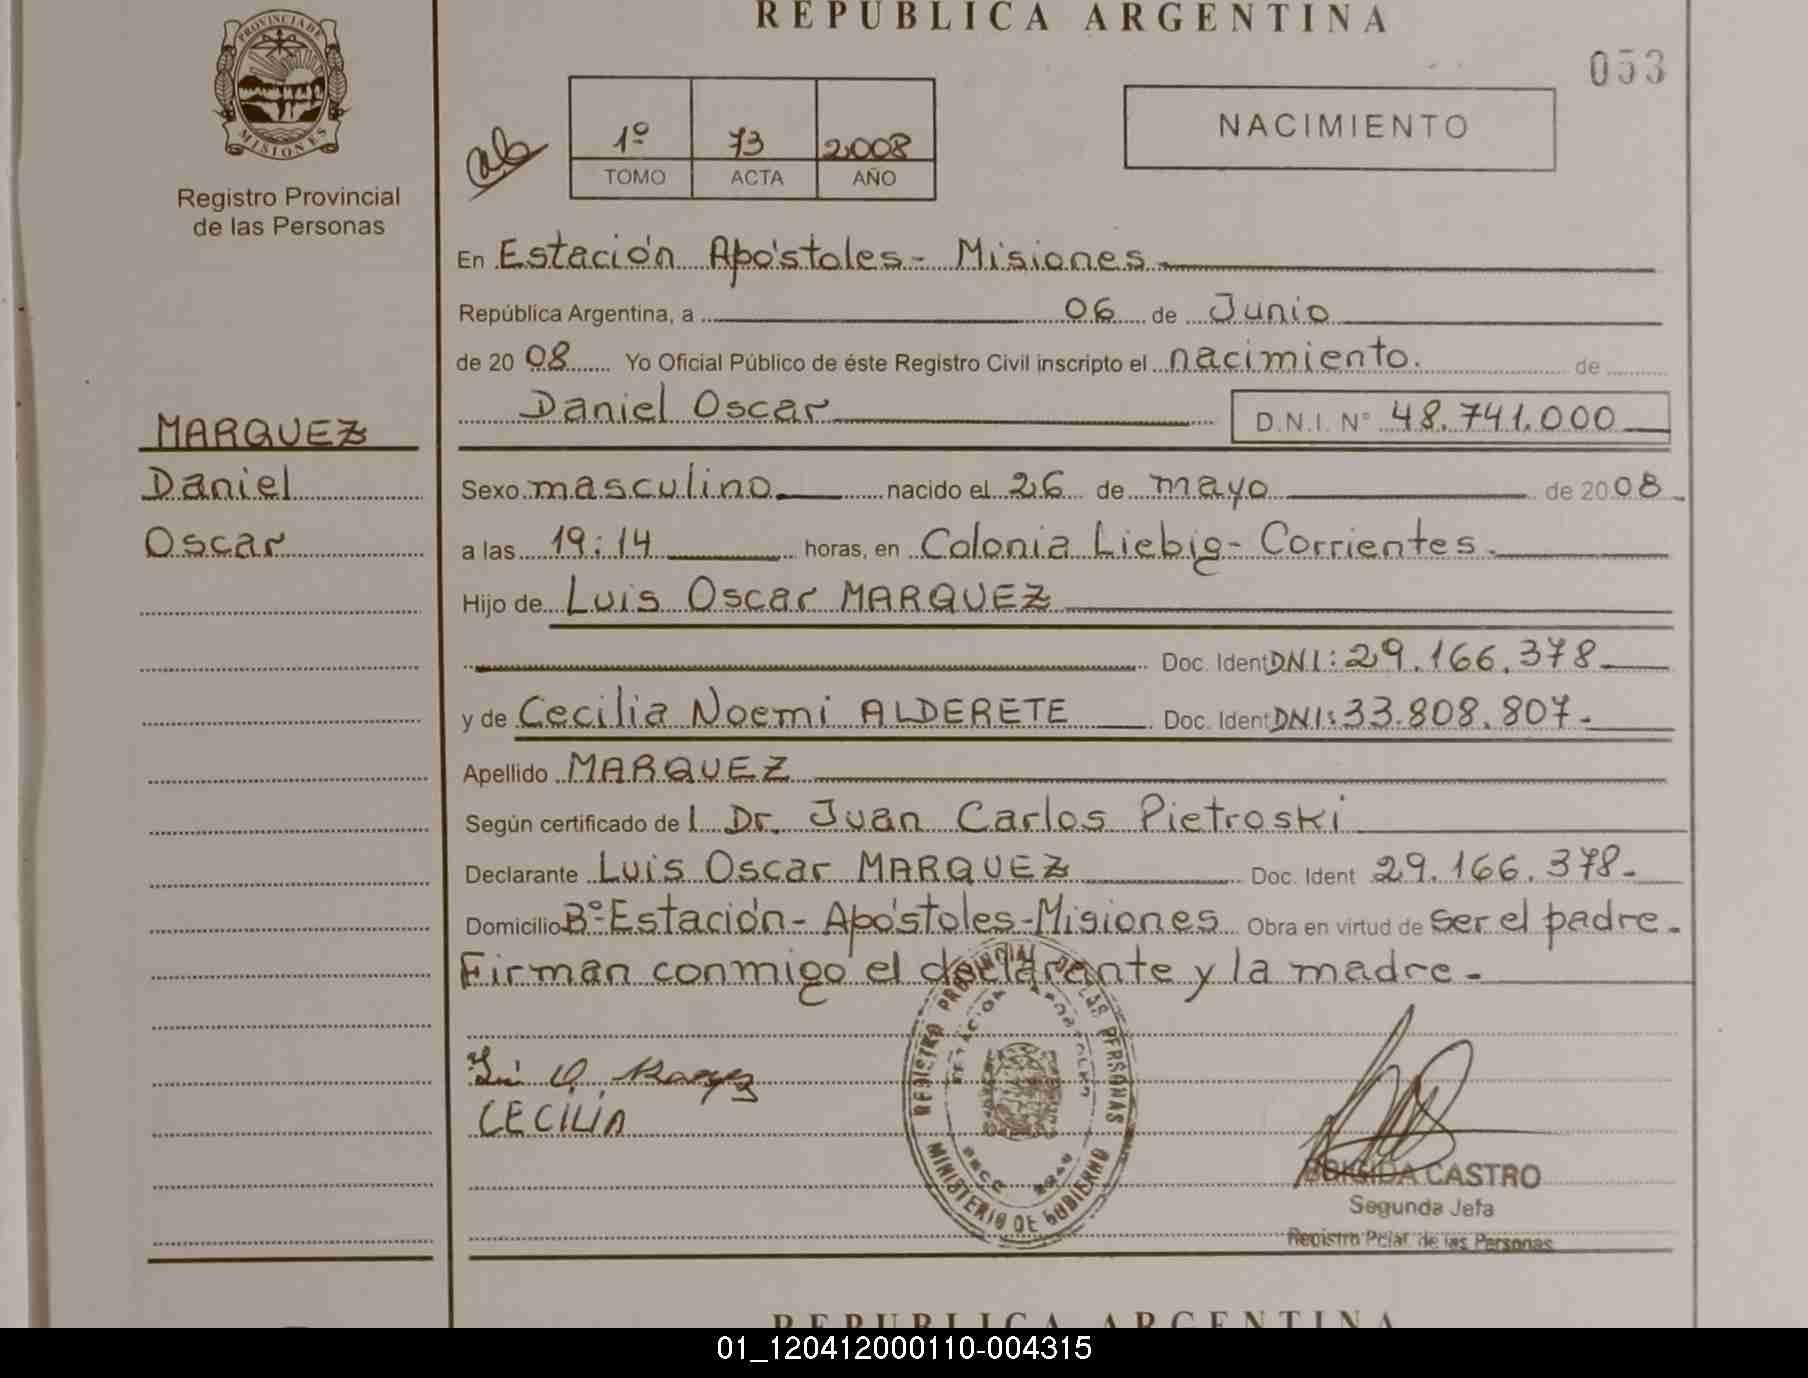 REPUBLICA ARGENTINA
053
PROVINCIA DE
MISIONES
Registro Provincial
de las Personas
1º 73 2008
TOMO ACTA AÑO
NACIMIENTO
En Estación Apóstoles - Misiones
República Argentina, a 06 de Junio
de 20 08 Yo Oficial Público de éste Registro Civil inscripto el nacimiento. de
Daniel Oscar D.N.I. Nº 48.741.000
MARQUEZ
Daniel
Oscar
Sexo masculino nacido el 26 de mayo de 2008
a las 19:14 horas, en Colonia Liebig - Corrientes.
Hijo de Luis Oscar MARQUEZ
Doc. Ident DNI: 29.166.378
y de Cecilia Noemi ALDERETE Doc. Ident DNI: 33.808.807.
Apellido MARQUEZ
Según certificado de l Dr. Juan Carlos Pietroski
Declarante Luis Oscar MARQUEZ Doc. Ident 29.166.378.
Domicilio Bº Estación - Apóstoles - Misiones Obra en virtud de ser el padre.
Firman conmigo el declarante y la madre.
CECILIA
REGISTRO PROVINCIAL DE LAS PERSONAS
ESTACION APOSTOLES
MINISTERIO DE GOBIERNO
CASTRO
Segunda Jefa
Registro Pcial. de las Personas
REPUBLICA ARGENTINA
01_120412000110-004315